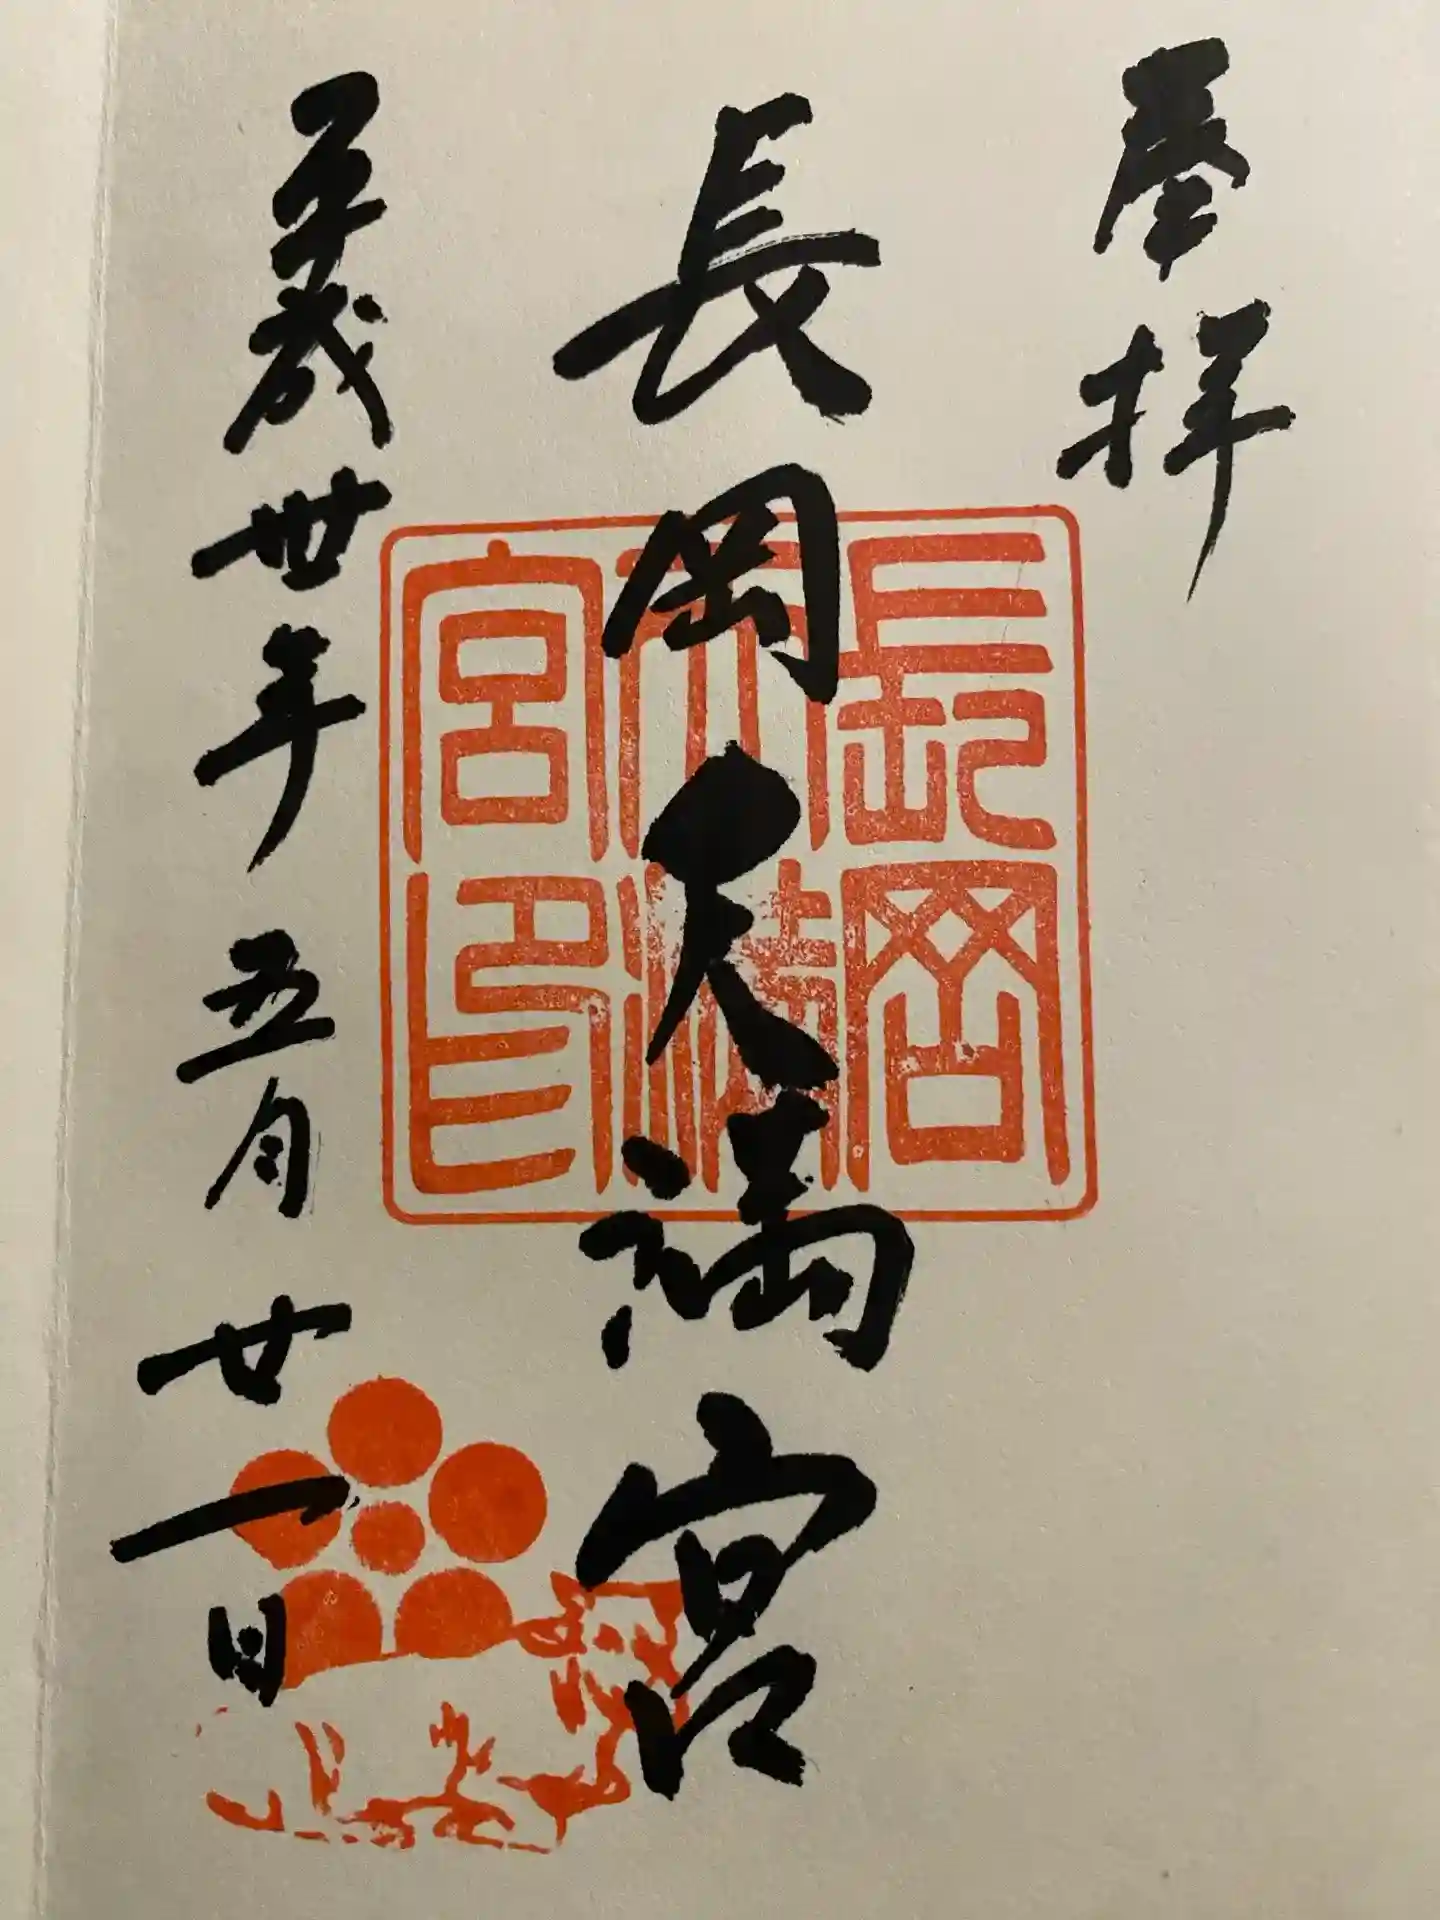 奉拝
長岡天満宮
平成卅年五月廿一日
長岡
天満
宮印